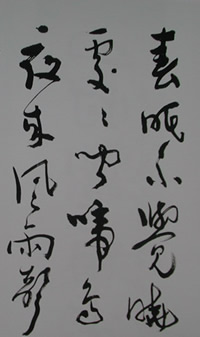 春眠不覺曉
處〻聞啼鳥
夜來風雨聲